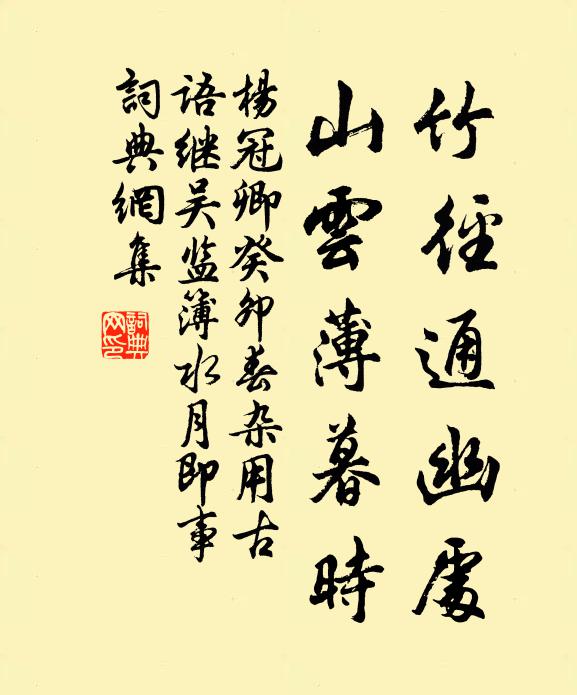 竹徑通幽處
山雲薄暮時
楊冠卿癸卯春杂用古
语继吴监簿水月即事
詞典網集
詞典網印